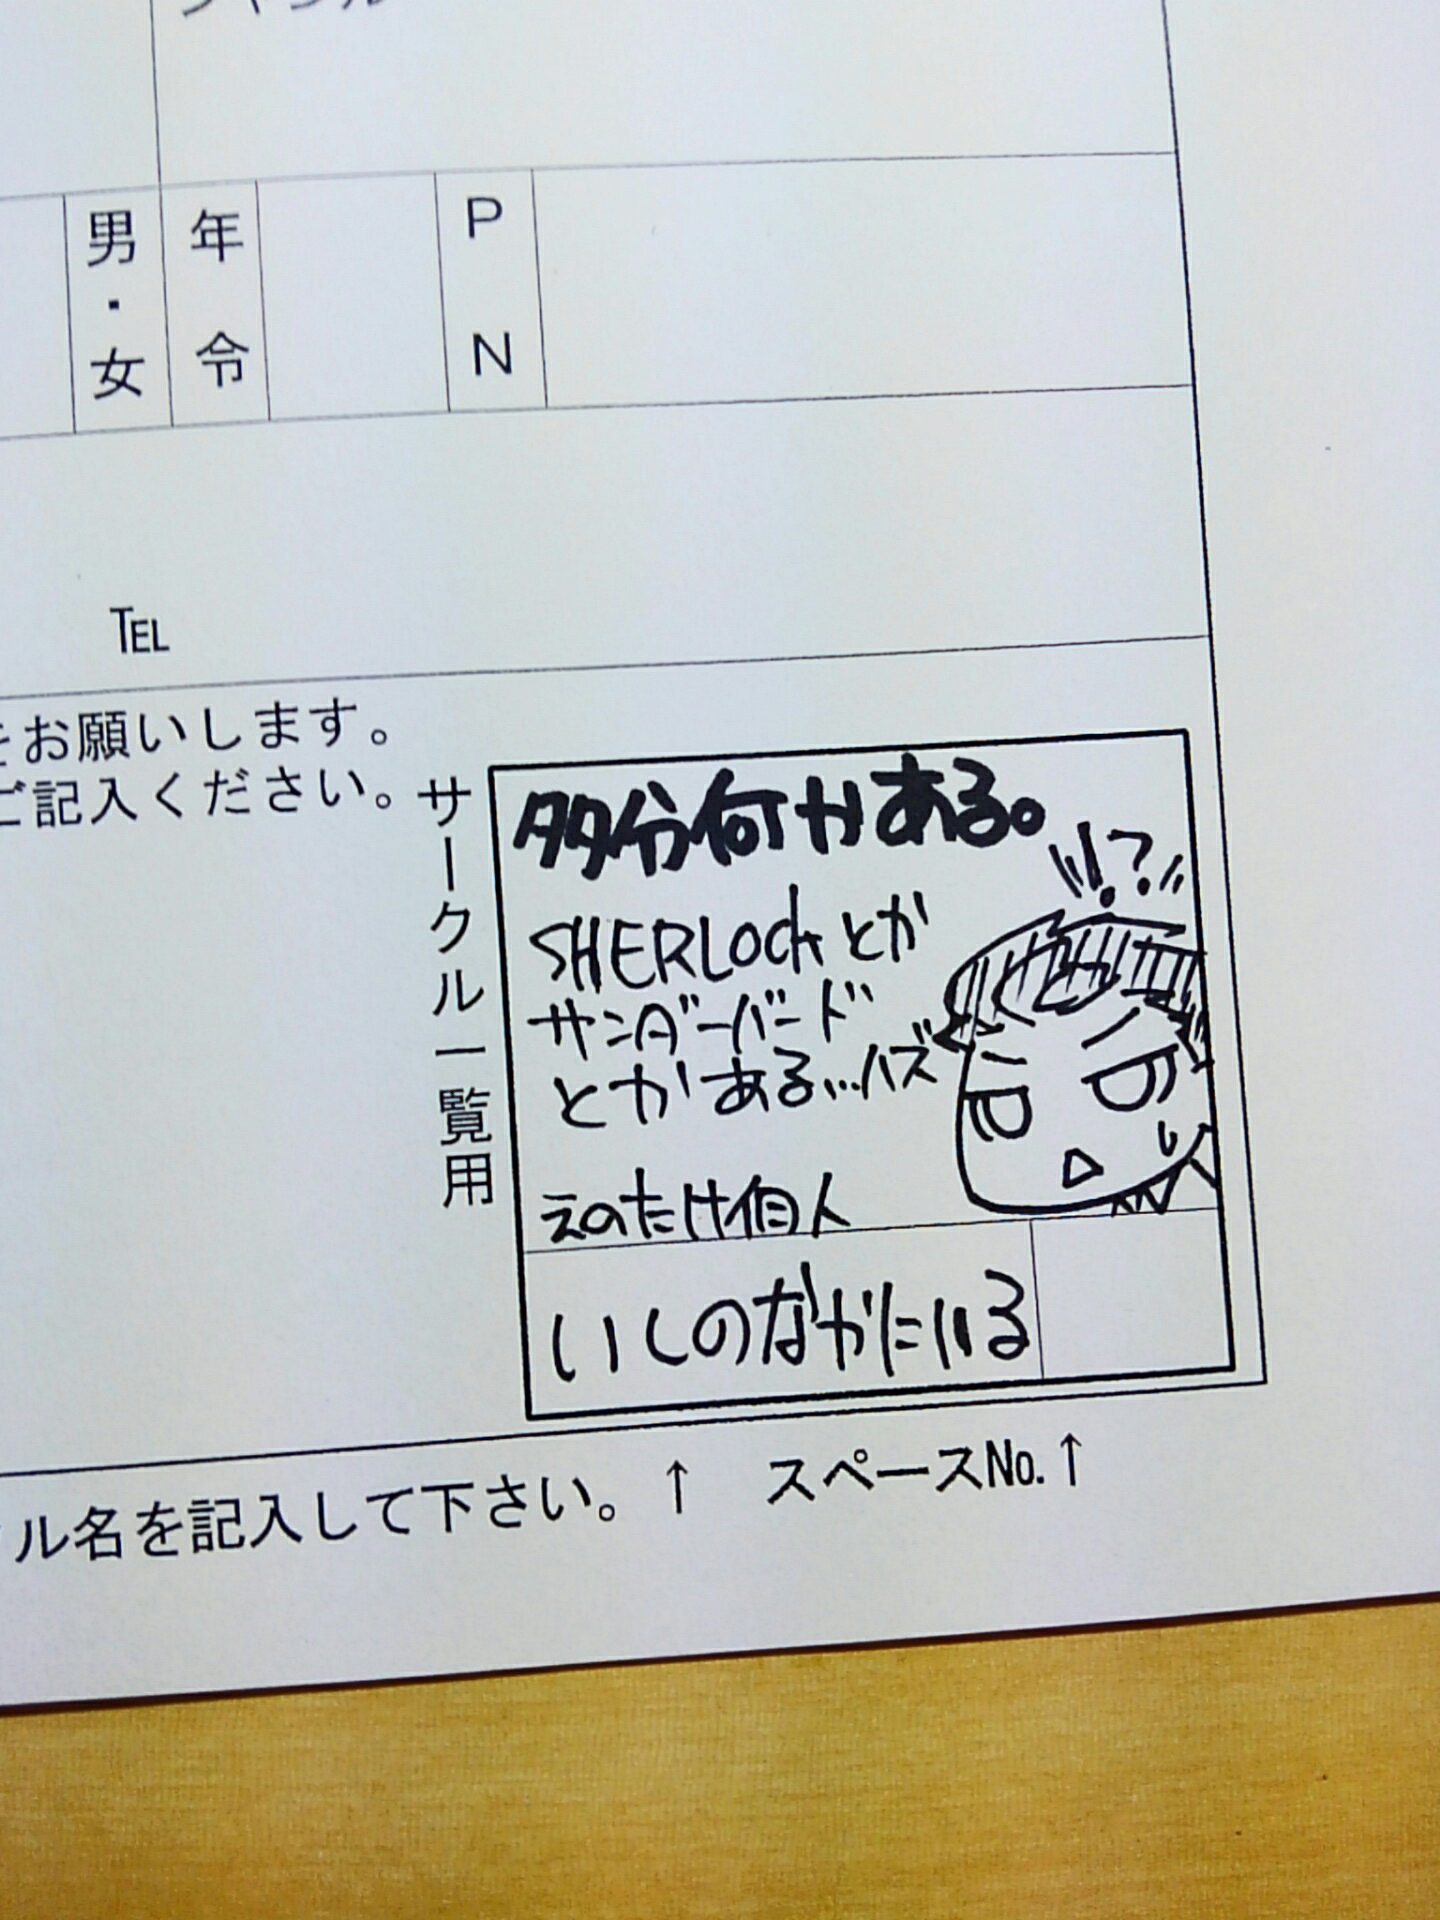 男・女
年令
PN
TEL
をお願いします。
ご記入ください。
サークル一覧用
多分何かある。
!?
SHERLOCKとか
サンダーバード
とかある…ハズ
えのたけ個人
いしのなかにいる
ル名を記入して下さい。↑ スペースNo.↑